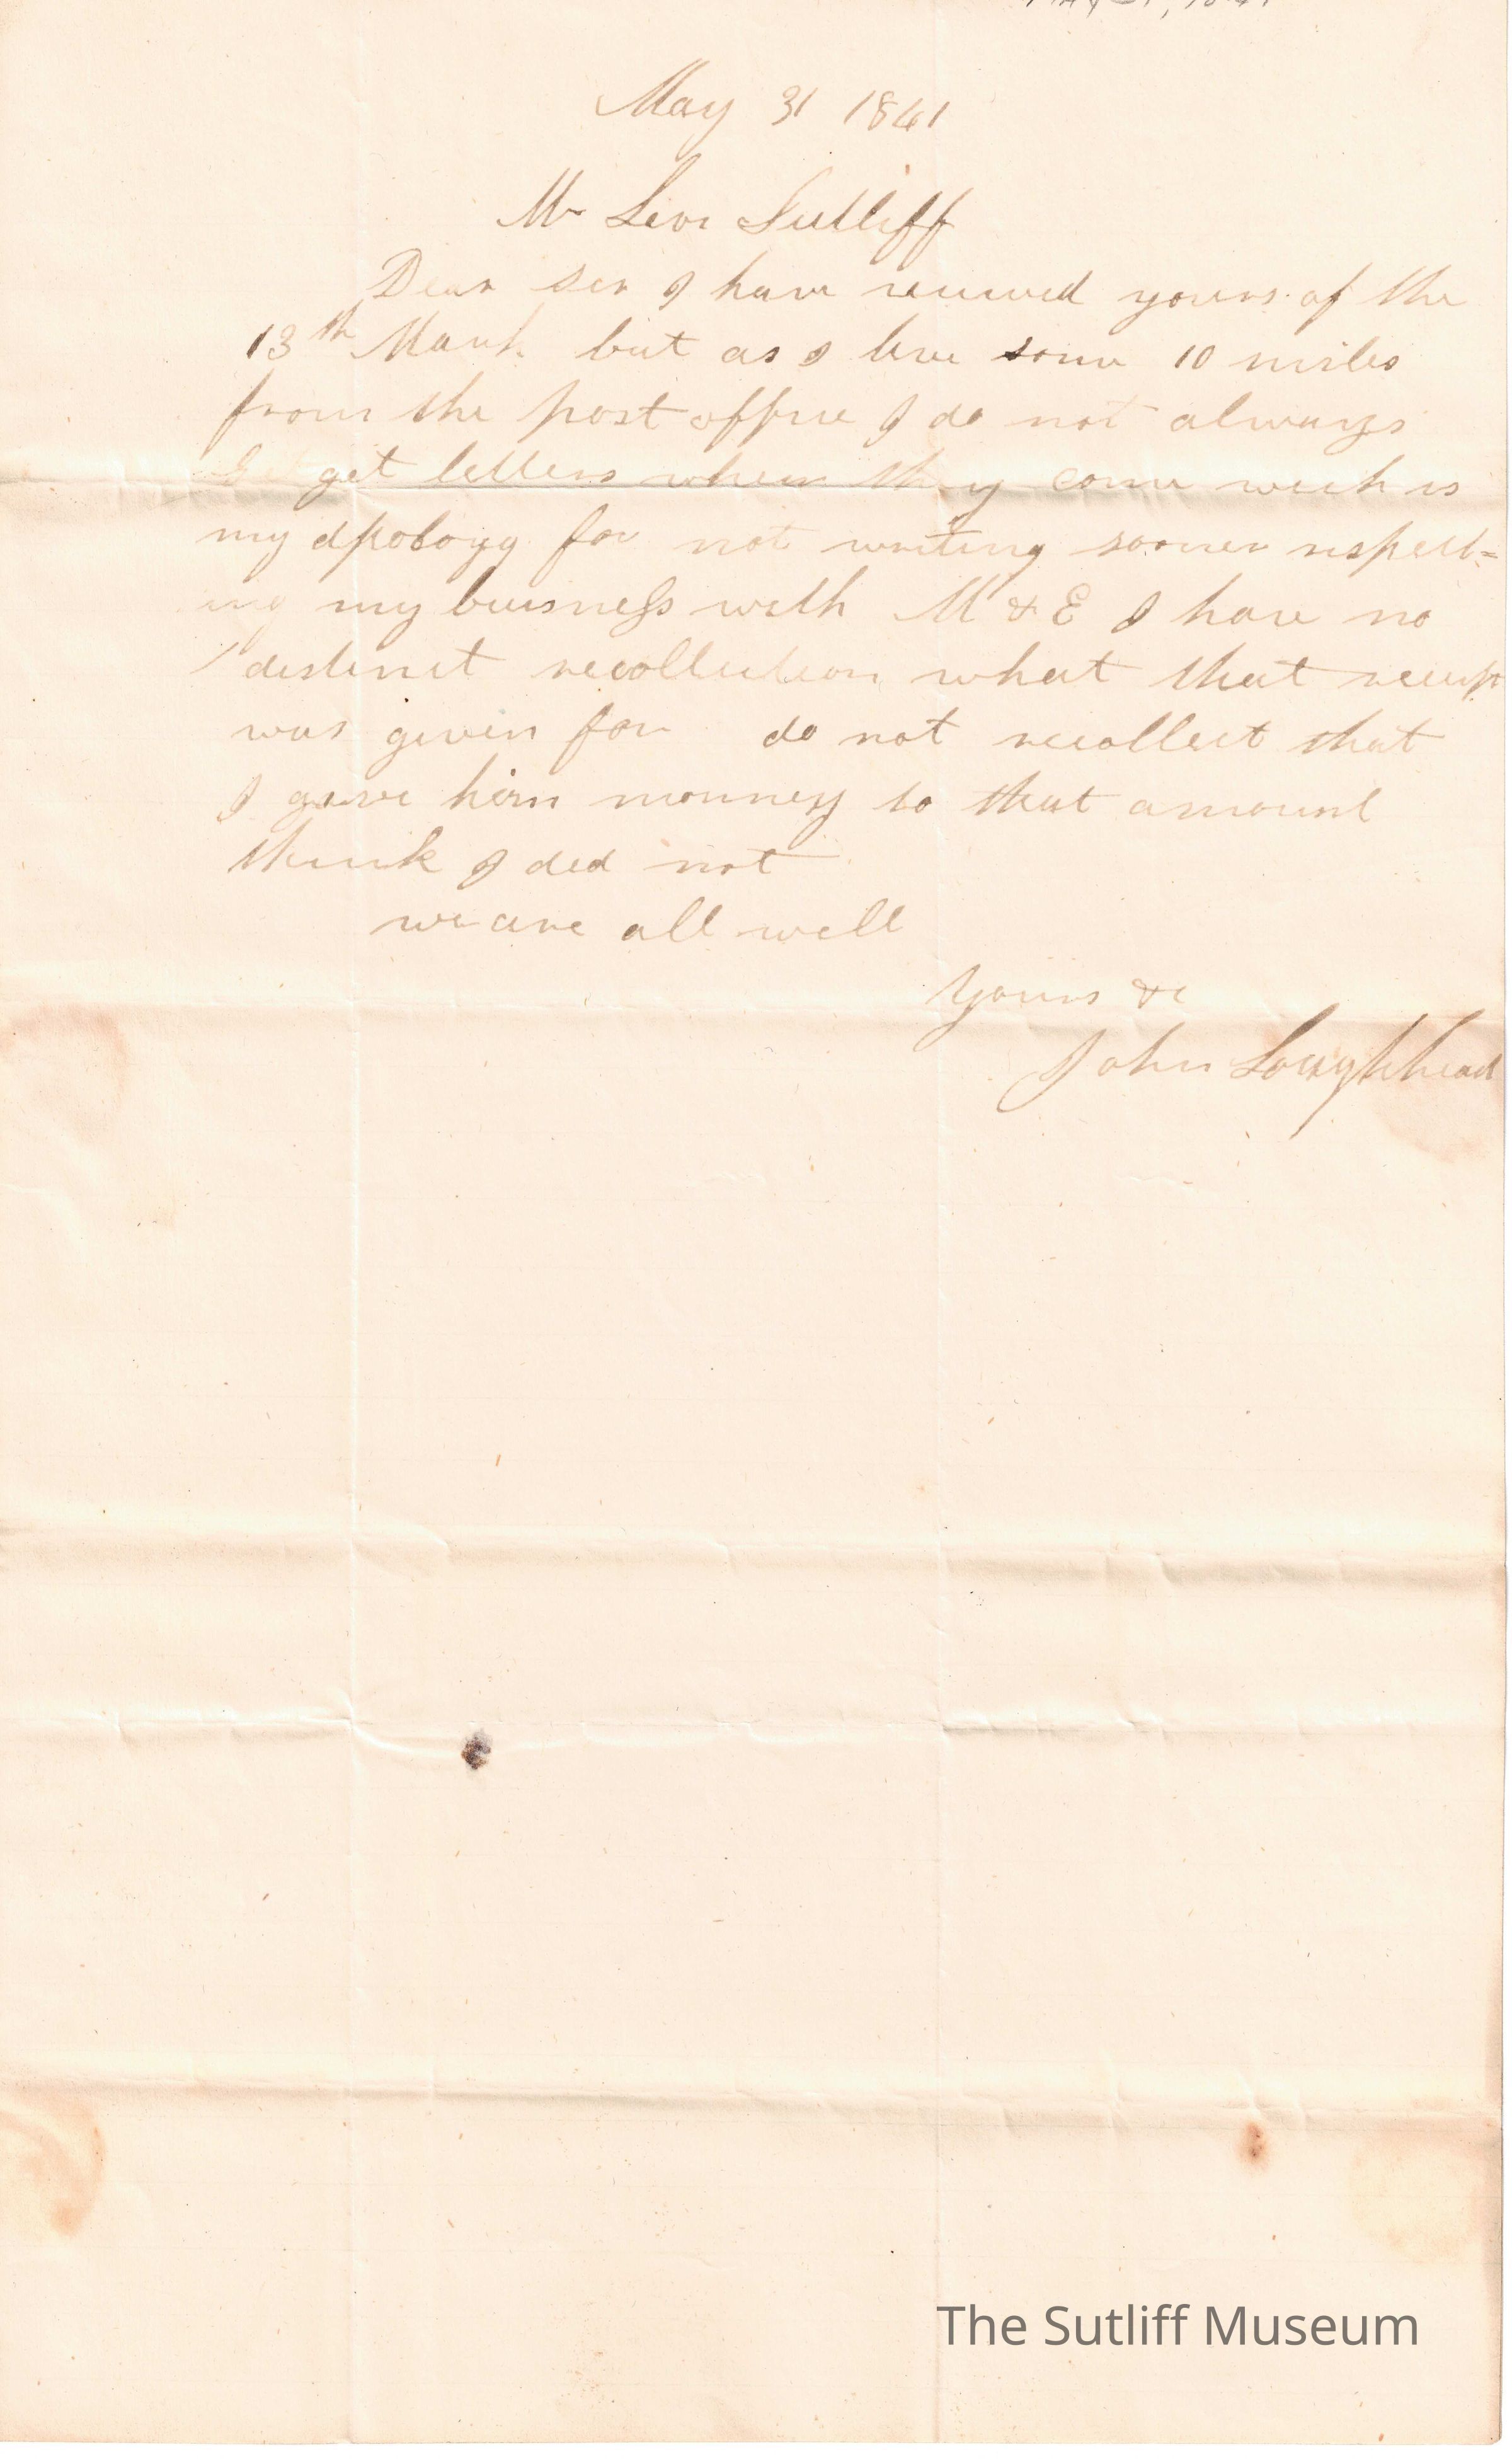 May 31, 1841
May 31 1841
Mr Levi Sutliff
Dear Sir I have received yours of the
13th March but as I live some 10 miles
from the post office I do not always
get letters when they come wich is
my apology for not writing sooner respect=
ing my buisness with M & E I have no
distinct recollection what that receipt
was given for do not recollect that
I gave him monney to that amount
think I did not
we are all well
Yours &c
John Loughhead
The Sutliff Museum